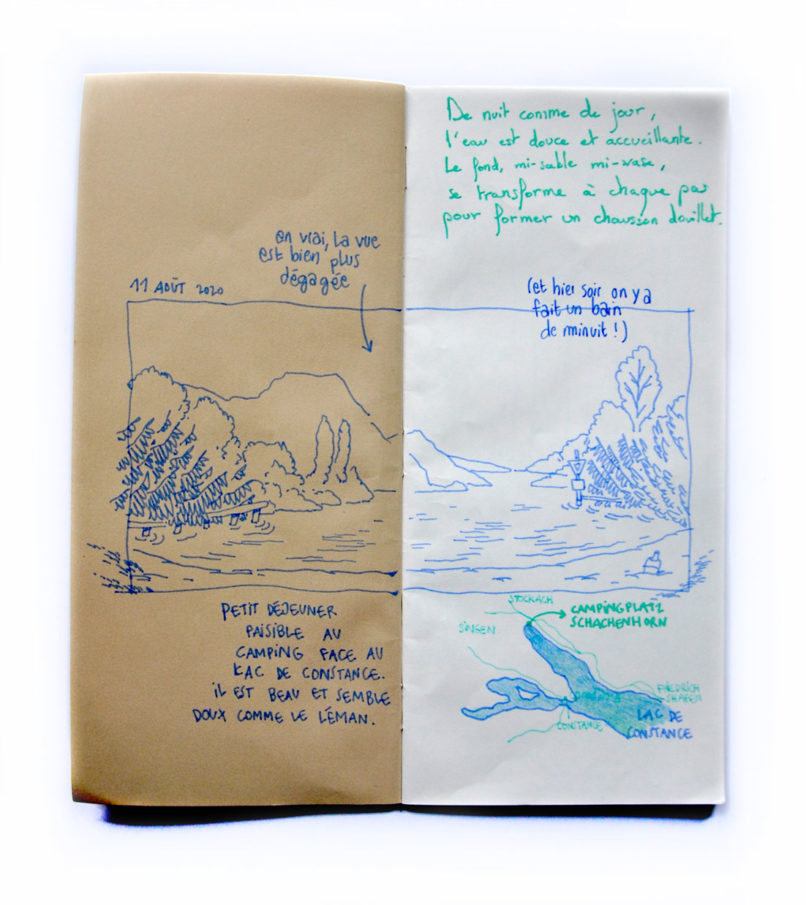 De nuit comme de jour,
l'eau est douce et accueillante.
Le fond, mi-sable mi-vase,
se transforme à chaque pas
pour former un chausson douillet.
en vrai, la vue
est bien plus
dégagée
11 AOÛT 2020
(et hier soir on y a
fait un bain
de minuit !)
PETIT DÉJEUNER
PAISIBLE AU
CAMPING FACE AU
LAC DE CONSTANCE.
iL EST BEAU ET SEMBLE
DOUX COMME LE LÉMAN.
STOCKACH
CAMPINGPLATZ
SCHACHENHORN
SINGEN
FRIEDRICH
SHAFEN
CONSTANCE
LAC DE
CONSTANCE